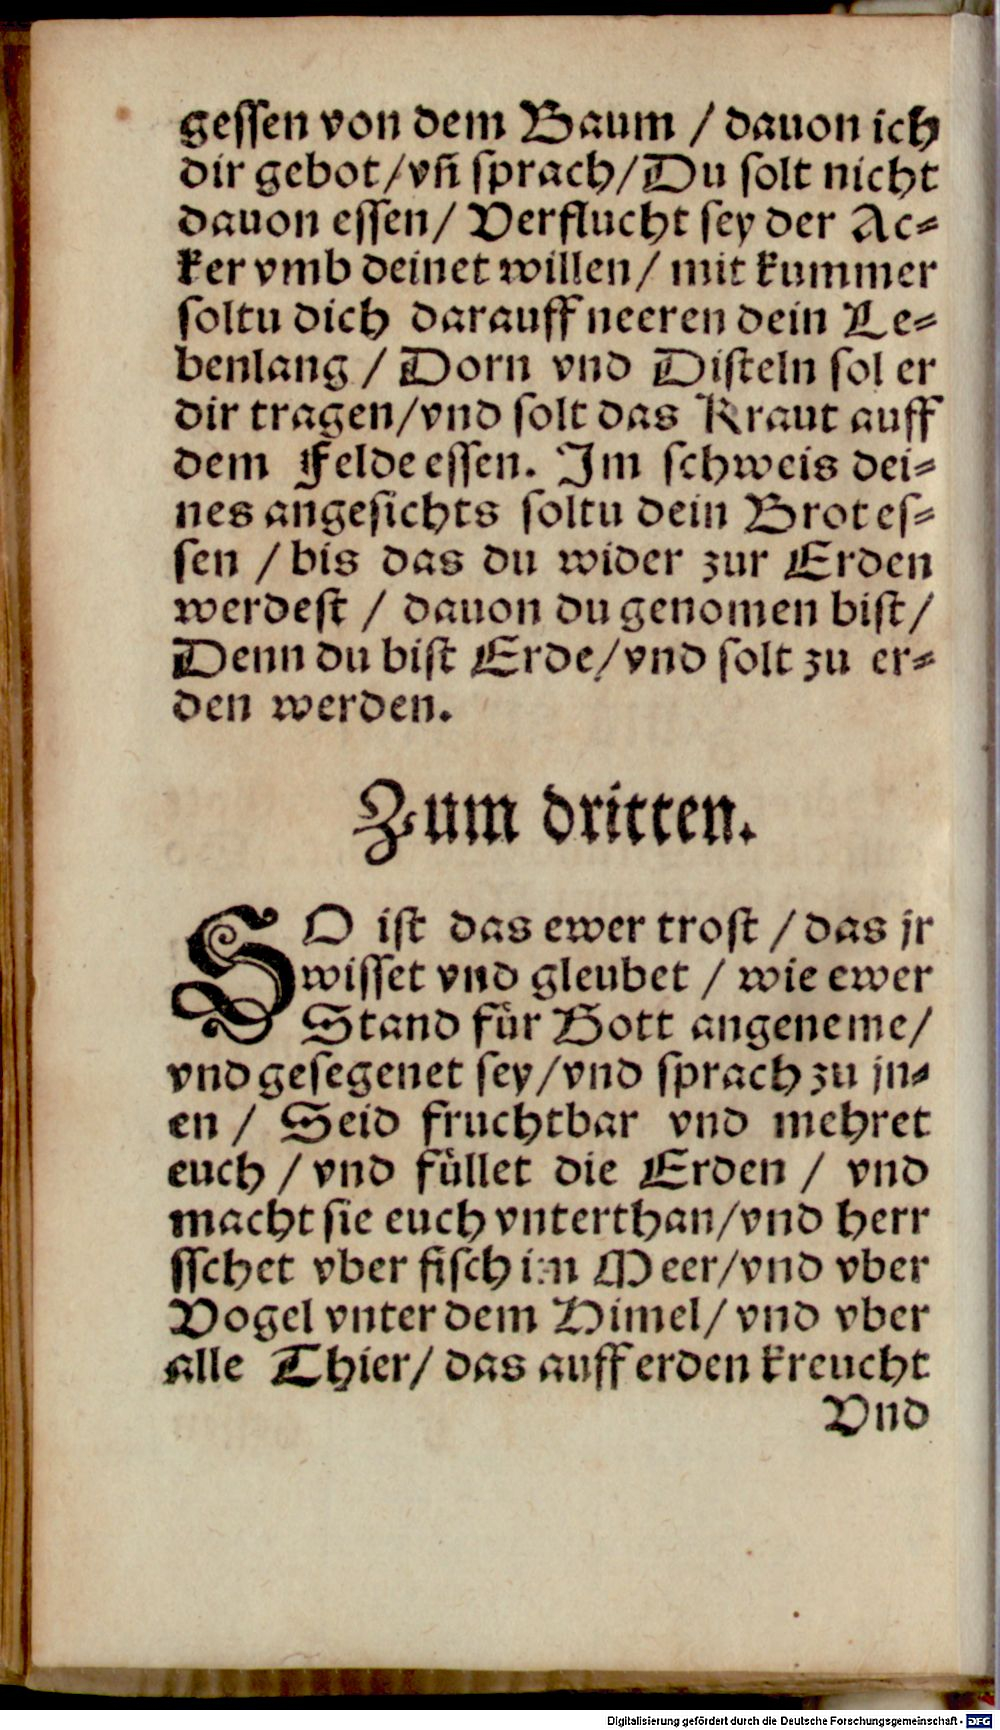 gessen von dem Baum / dauon ich
dir gebot/vñ sprach/Du solt nicht
dauon essen/ Verflucht sey der Ac⸗
ker vmb deinet willen/ mit kummer
soltu dich darauff neeren dein Le⸗
benlang / Dorn vnd Disteln sol er
dir tragen/vnd solt das Kraut auff
dem Felde essen. Im schweis dei⸗
nes angesichts soltu dein Brot es⸗
sen / bis das du wider zur Erden
werdest / dauon du genomen bist/
Denn du bist Erde/vnd solt zu er⸗
den werden.
Zum dritten.
SO ist das ewer trost / das jr
wisset vnd gleubet / wie ewer
Stand für Gott angeneme/
vnd gesegenet sey/vnd sprach zu jn⸗
en / Seid fruchtbar vnd mehret
euch / vnd füllet die Erden / vnd
macht sie euch vnterthan/vnd herr
sschet vber fisch im Meer/vnd vber
Vogel vnter dem Himel/ vnd vber
alle Thier/ das auff erden kreucht
Vnd
Digitalisierung gefördert durch die Deutsche Forschungsgemeinschaft - DFG